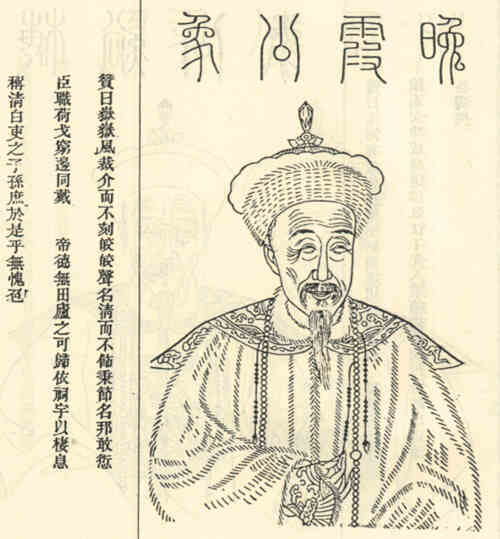 晚霞公象
贊曰嶽嶽風裁介而不刻皎皎聲名清而不飾秉節名邦敢愆
臣職荷戈窮邊同戴　帝德無田廬之可歸依祠宇以棲息
稱清白吏之子孫庶於是乎無愧色